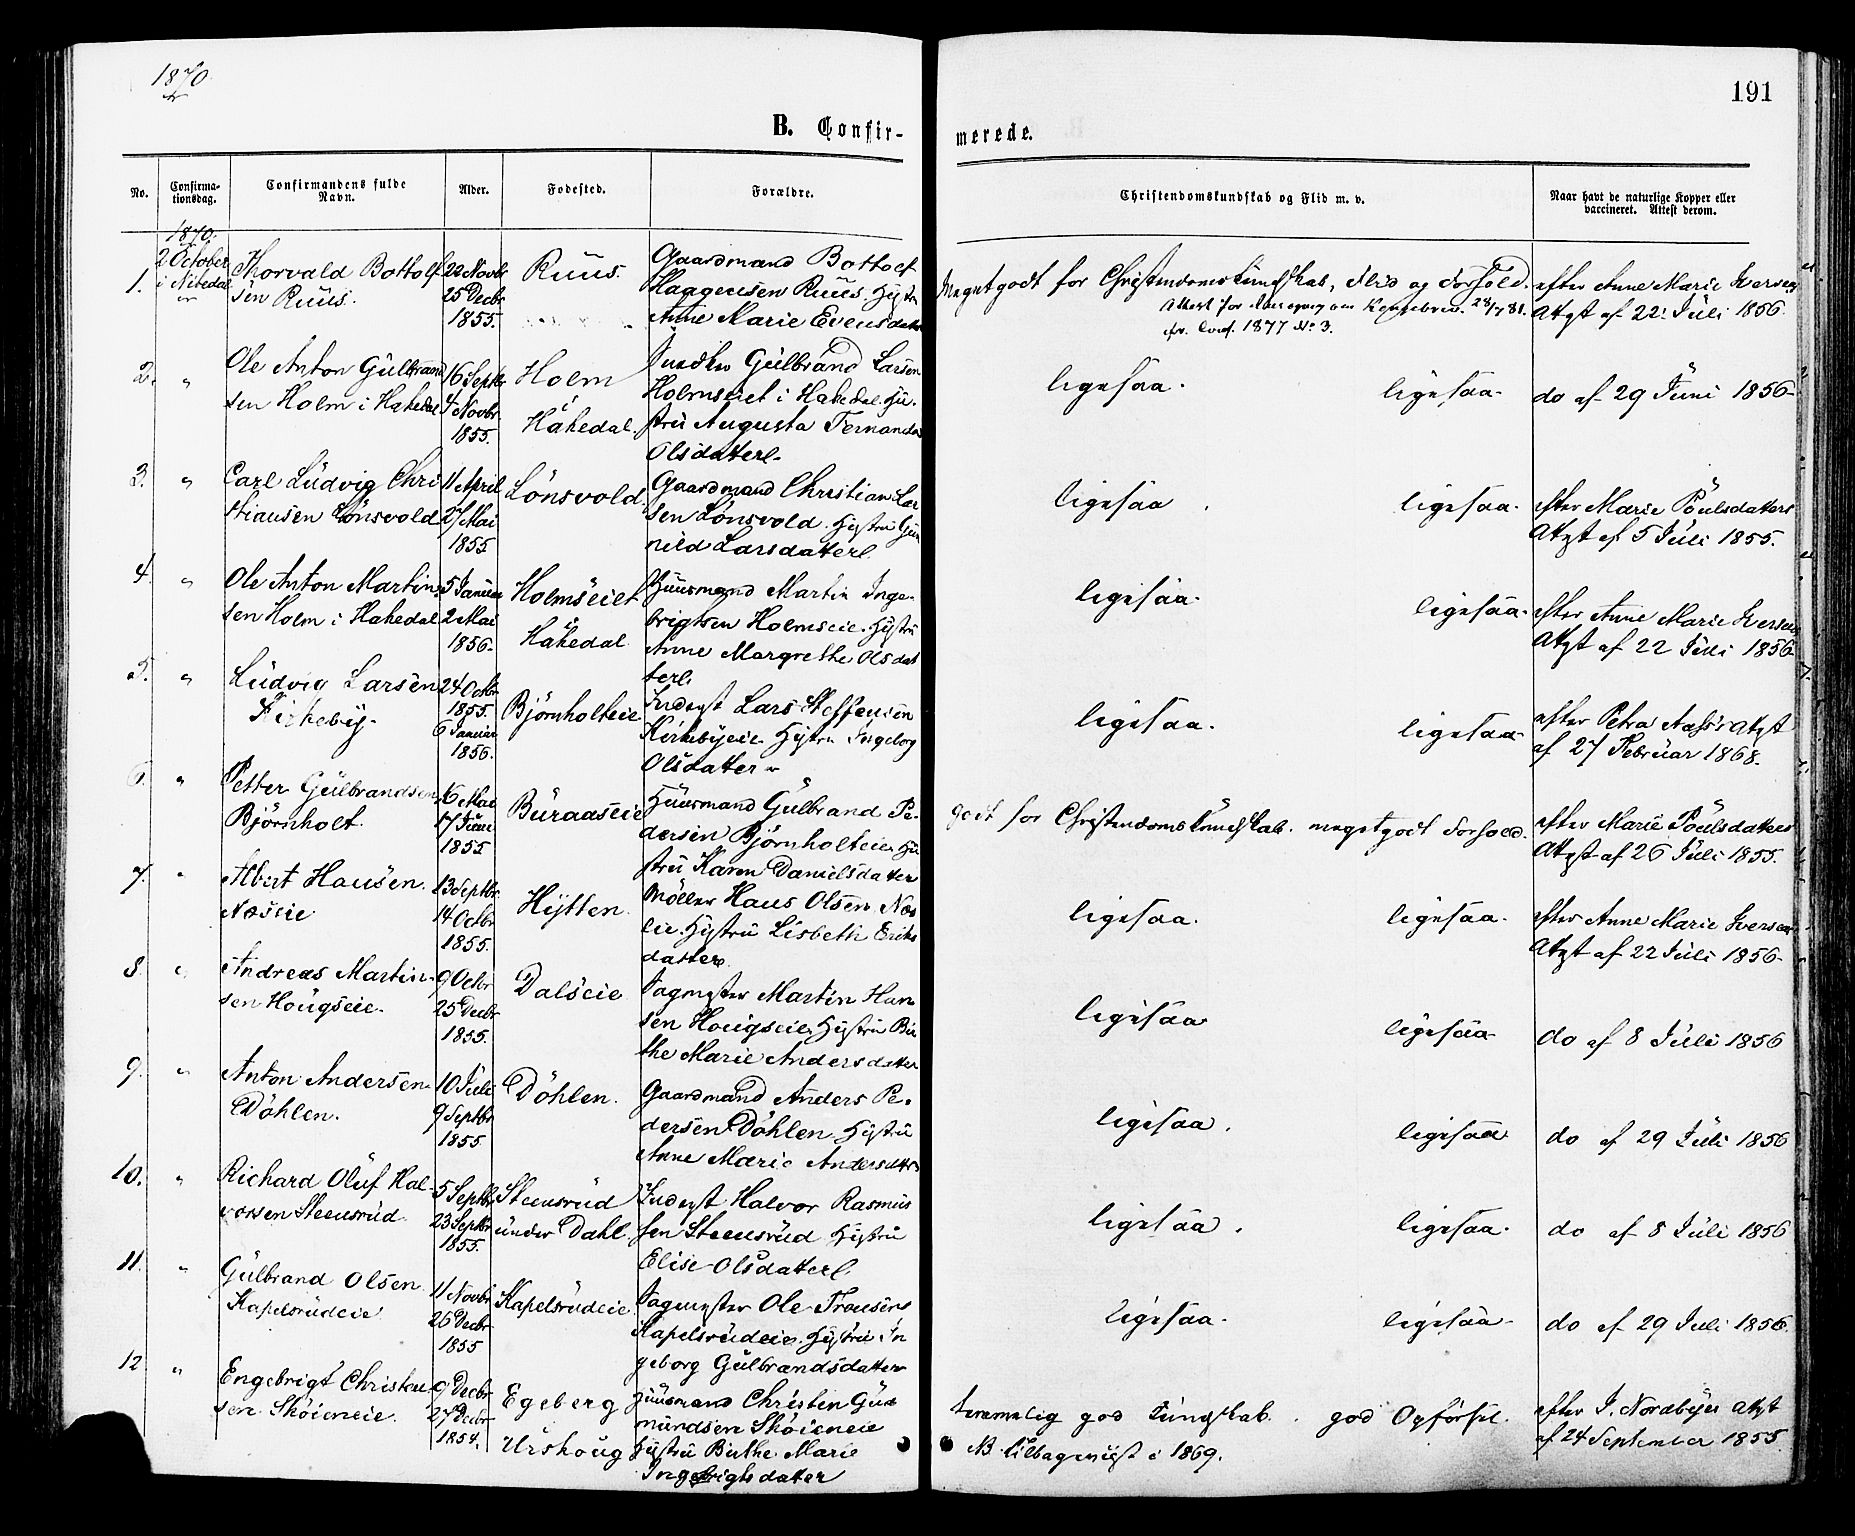 1870.
191
B. Confir-
merede.
No.
Confirma-
tionsdag.
Confirmandens fulde
Navn.
Alder.
Fodested.
Forældre.
Christendomskundskab og Flid m. v.
Naar havt de naturlige Kopper eller
vaccineret. Attest derom.
1870.
2 October
i Nitedal
1.
Thorvald Bottolf
sen Ruus.
22 Novbr
25 Decbr
1855.
Ruus.
Gaardmand Bottolf
Haagensen Ruus. Hystru
Anne Marie Evensdatter
Meget godt for Christendomskundskab, Flid og Forhold.
cfr. Conf. 1877 No 3.
efter Anne Marie Iversens
Atgt af 22. Juli 1856.
2. "
Ole Anton Gulbrand
sen Holm i Hakedal
16 Septbr
4 Novbr
1855.
Holm
i
Hakedal.
Gulbrand Larsen
Holmseiet i Hakedal. Hu-
stru Augusta Fernanda
Olsdatter.
ligesaa. ligesaa.
do af 29 Juni 1856
3. "
Carl Ludvig Chri
stiansen Lönsvold
11 April
27 Mai
1855
Lönsvold.
Gaardmand Christian Lar
sen Lönsvold. Hystru Gun
nild Larsdatter.
ligesaa. ligesaa.
efter Marie Poulsdatters
Atgt af 5 Juli 1855.
4. "
Ole Anton Martin-
sen Holm i Hakedal
5 Januar
2 Mai
1856.
Holmseiet
i
Hakedal
Huusmand Martin Inge-
brigtsen Holmseie. Hystru
Anne Margrethe Olsdat
ter.
ligesaa. ligesaa.
efter Anne Marie Iversens
Atgt af 22 Juli 1856
5. "
Ludvig Larsen
Kirkeby.
24 Octbr
1855.
6 Januar
1856.
Björnholteie
Inderst Lars Steffensen
Kirkebyeie. Hystru Ingeborg
Olsdatter
ligesaa. ligesaa
efter Petra Aass's Atgt
af 27 Februar 1868.
6. "
Petter Gulbrandsen
Björnholt.
16 Mai
17 Juni
1855
Buraaseie
Huusmand Gulbrand Pe-
dersen Björnholteie. Hu
stru Karen Danielsdatter
godt for Christendomskundskab. meget godt Forhold.
efter Marie Poulsdatters
Atgst af 26 Juli 1855.
7. "
Albert Hansen
Næseie
13 Septbr
14 Octbr
1855.
Hytten
Möller Hans Olsen Næs
eie. Hystru Lisbeth Eriks
datter.
ligesaa. ligesaa.
efter Anne Marie Iversens
Atgt af 22 Juli 1856
8. "
Andreas Martin-
sen Hougseie.
9 Octbr
25 Decbr
1855.
Dalseie
Sagmester Martin Han
sen Hougseie. Hystru Bir
the Marie Andersdatter
ligesaa ligesaa
do af 8 Juli 1856
9. "
Anton Andersen
Döhlen.
10 Juli
9 Septbr
1855
Döhlen.
Gaardmand Anders Pe-
dersen Döhlen. Hystru
Anne Marie Andersdatter
ligesaa. ligesaa
do af 29 Juli 1856
10. "
Richard Oluf Hal-
vorsen Steensrud
5 Septbr
23 Septbr
1855.
Steensrud
under Dahl.
Inderst Halvor Rasmus
sen Steensrud Hystru
Elise Olsdatter.
ligesaa. ligesaa.
do af 8 Juli 1856
11. "
Gulbrand Olsen
Kapelsrudeie
11 Novbr
26 Decbr
1855
Kapelsrudeie
Sagmester Ole Fransen
Kapelsrudeie. Hystru In
geborg Gulbrandsdatter
ligesaa. ligesaa
do af 29 Juli 1856.
12 "
Engebrigt Christen
sen Sköieneie.
9 Decbr
27 Decbr
1854.
Egeberg
i
Urskoug
Huusmand Christen Gud
mundsen Sköieneie
Hystru Birthe Marie
Ingebrigtsdatter
temmelig god Kundskab. god Opförsel.
NB tilbageviist i 1869.
efter J. Nordbyes Atgt
af 24 September 1855